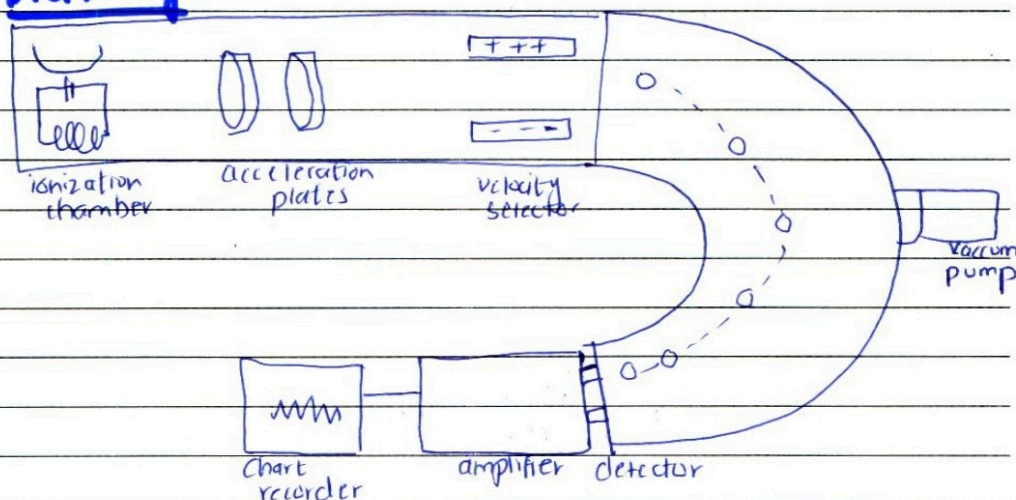 + + +
- - -
ionization
chamber
acceleration
plates
velocity
selector
vaccum
pump
chart
recorder
amplifier
detector